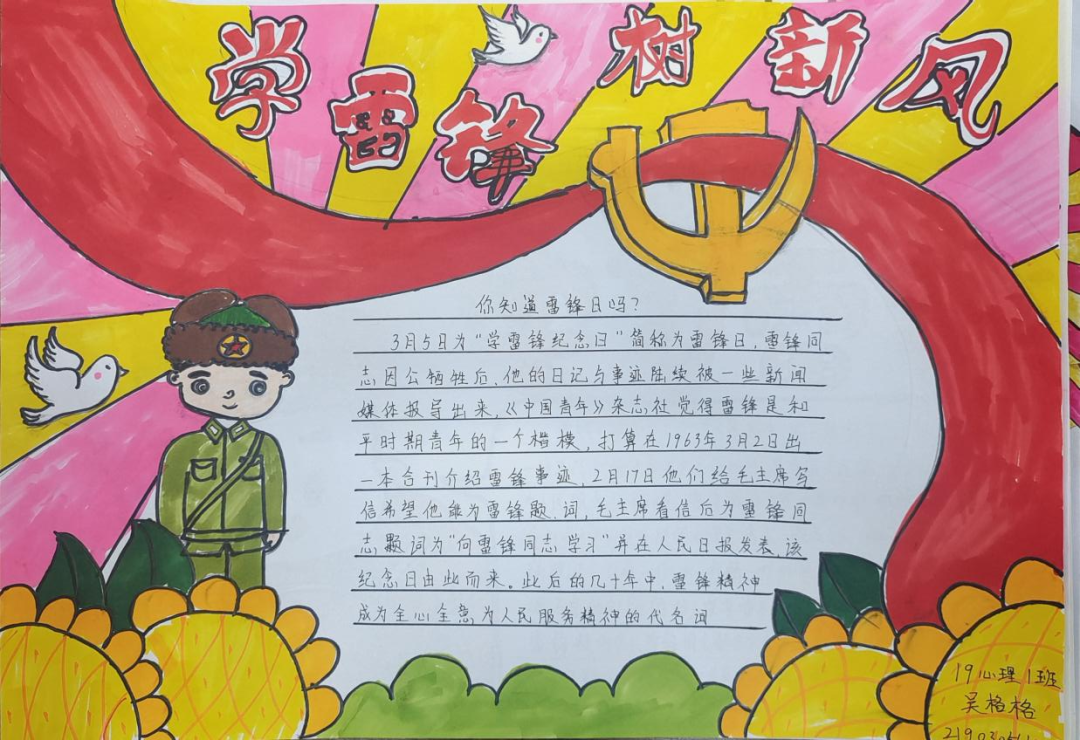 学雷锋 树新风
你知道雷锋日吗？
3月5日为“学雷锋纪念日”简称为雷锋日，雷锋同
志因公牺牲后，他的日记与事迹陆续被一些新闻
媒体报导出来，《中国青年》杂志社觉得雷锋是和
平时期青年的一个楷模，打算在1963年3月2日出
一本合刊介绍雷锋事迹，2月17日他们给毛主席写
信希望他能为雷锋题词，毛主席看信后为雷锋同
志题词为“向雷锋同志学习”并在人民日报发表，该
纪念日由此而来。此后的几十年中，雷锋精神
成为全心全意为人民服务精神的代名词
19心理1班
吴格格